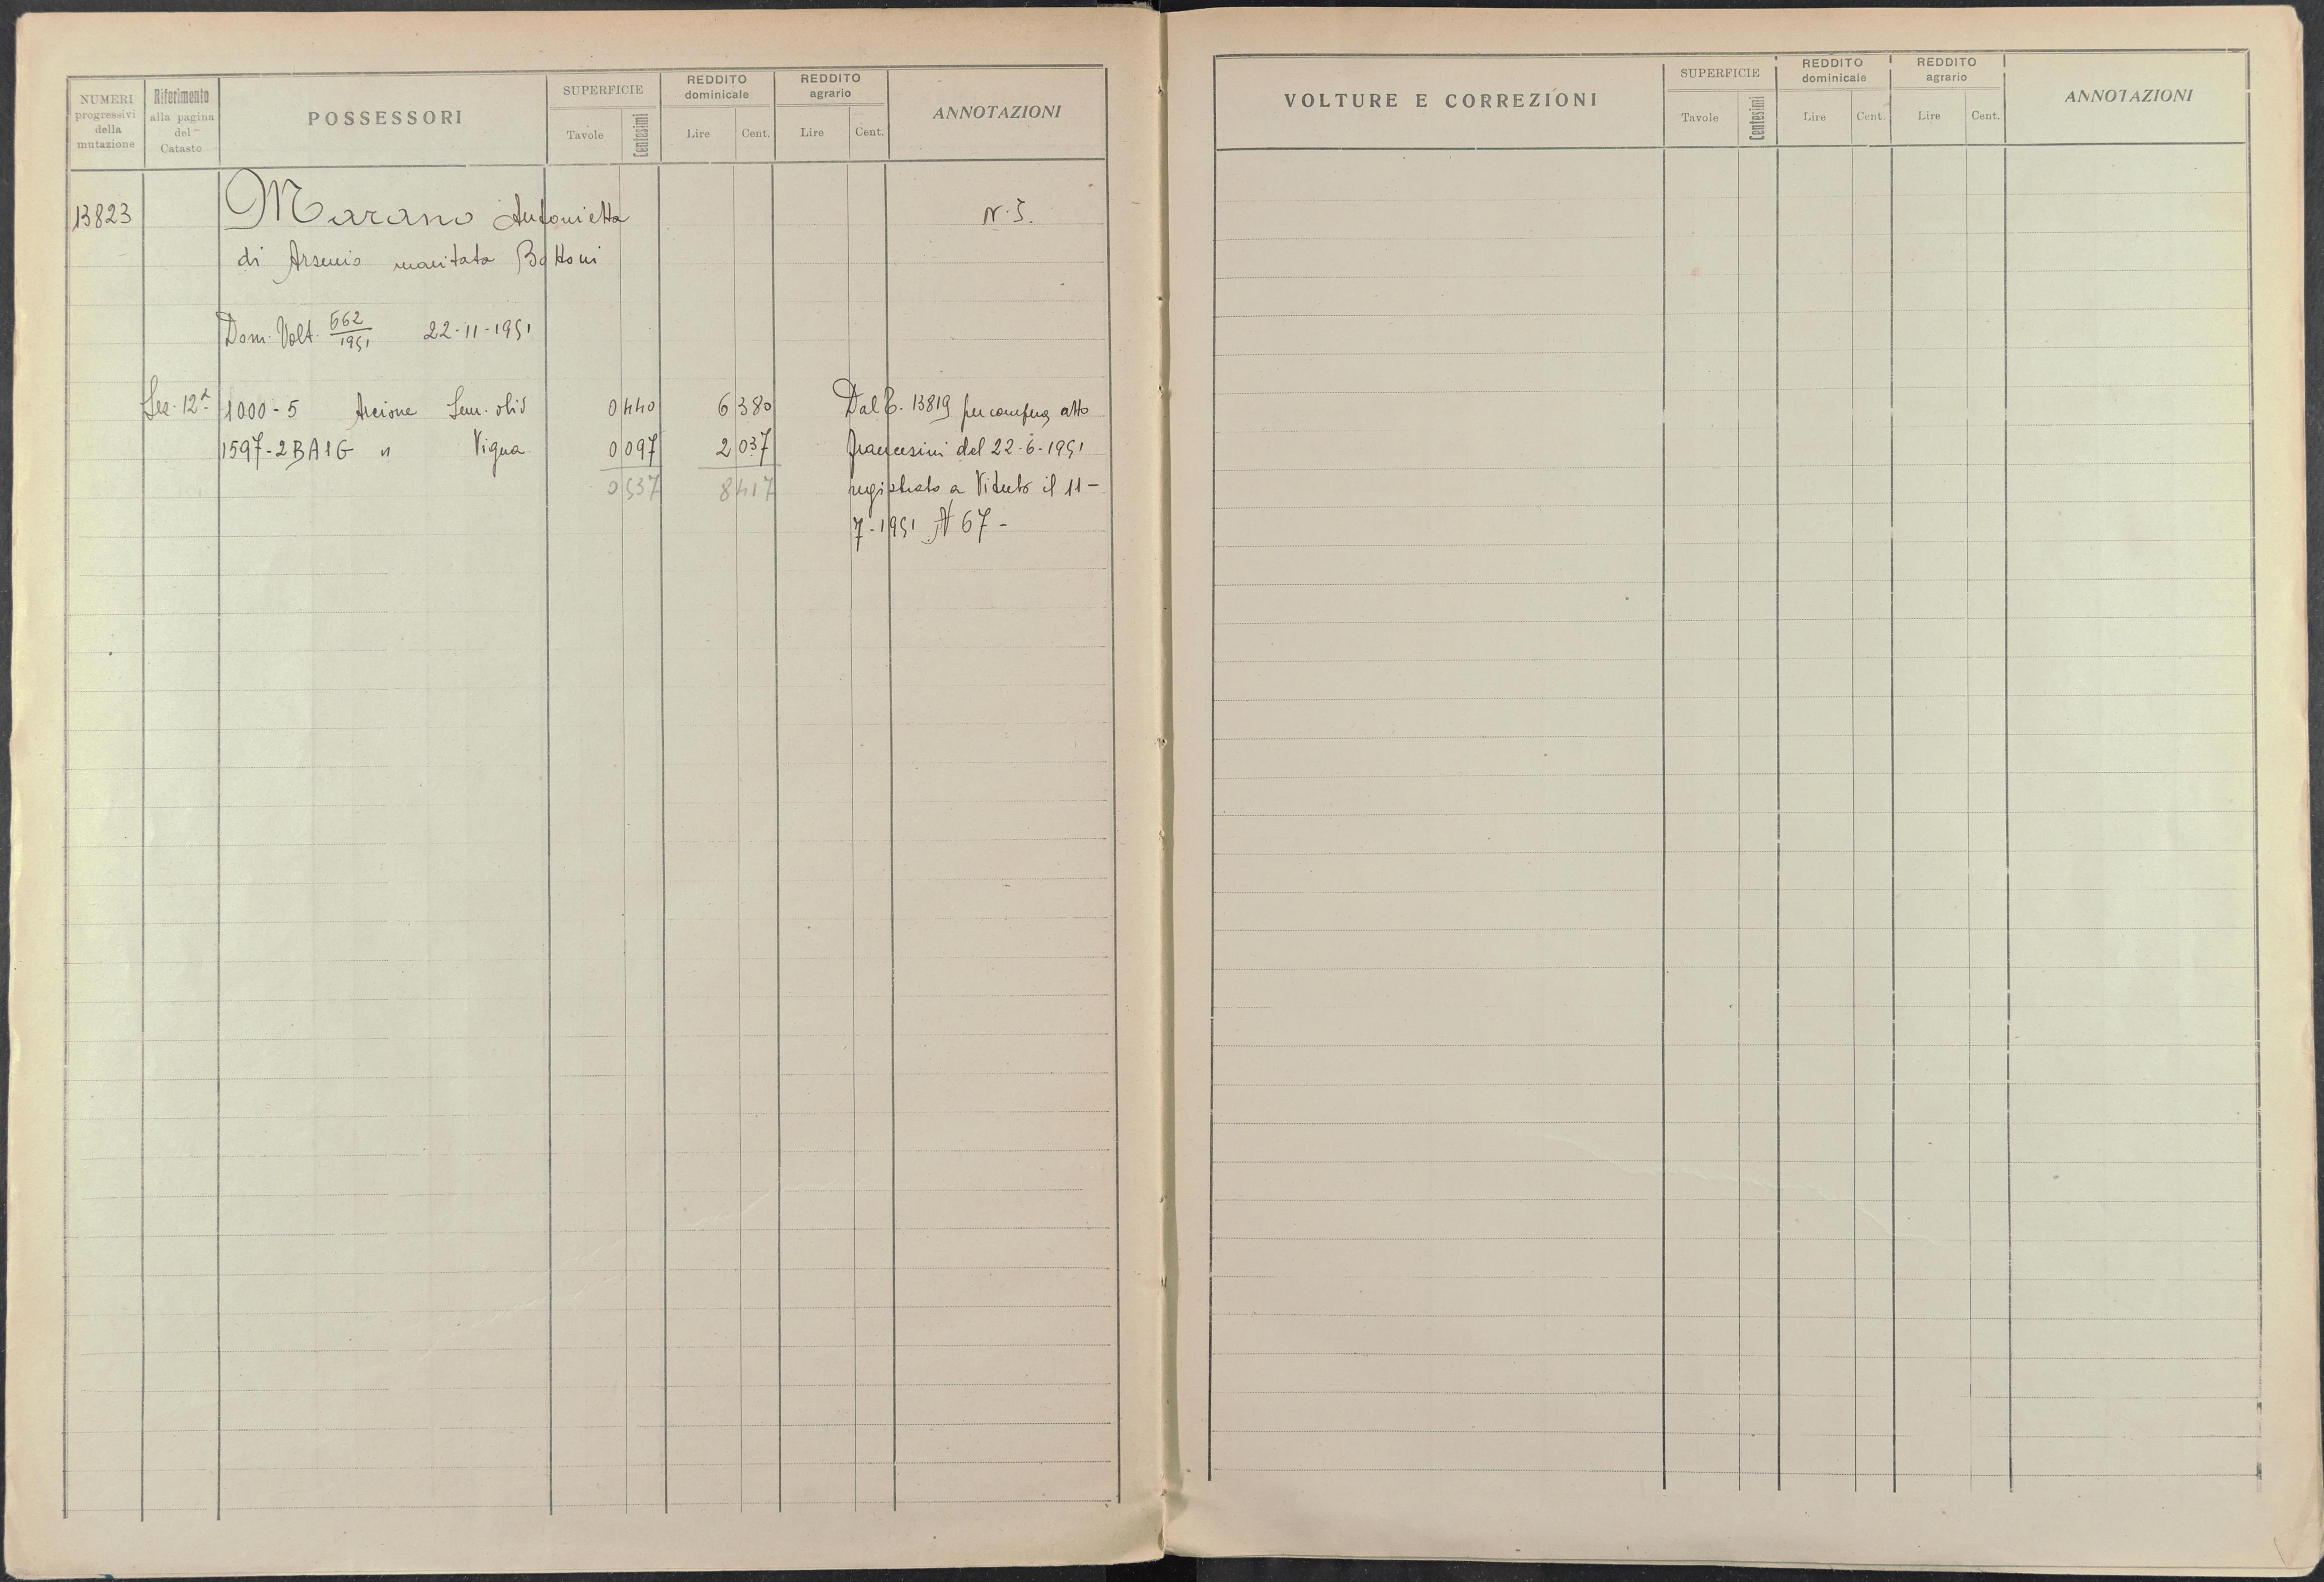 NUMERI progressivi della mutazione
Riferimento alla pagina del Catasto
POSSESSORI
SUPERFICIE
Tavole
Centesimi
REDDITO dominicale
Lire
Cent.
REDDITO agrario
Lire
Cent.
ANNOTAZIONI
13823 Marano Antonietta N. 5.
di Arsenio maritata Bottoni
Dom. Volt. 662/1951 22-11-1951
Sez. 12ª 1000-5 Arcione Sem. oliv 0 440 6 380 Dal P. 13819 per compera atto
1597-2BA1G " Vigna 0 097 2 037 francesini del 22-6-1951
0 537 8 417 registrato a Viterbo il 11-
7-1951 N 67-
VOLTURE E CORREZIONI
SUPERFICIE
Tavole
Centesimi
REDDITO dominicale
Lire
Cent.
REDDITO agrario
Lire
Cent.
ANNOTAZIONI